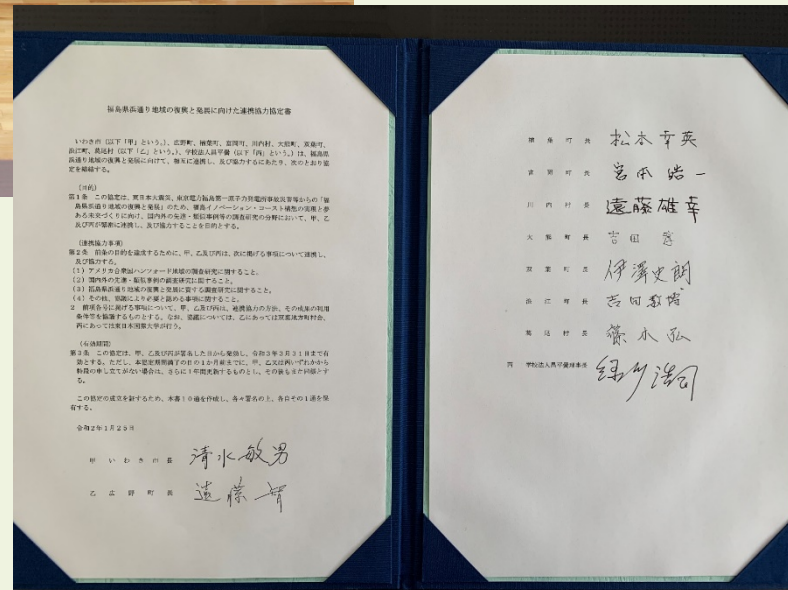 福島県浜通り地域の復興と発展に向けた連携協力協定書
いわき市（以下「甲」という。）、広野町、楢葉町、富岡町、川内村、大熊町、双葉町、
浪江町、葛尾村（以下「乙」という。）、学校法人昌平黌（以下「丙」という。）は、福島県
浜通り地域の復興と発展に向けて、相互に連携し、及び協力するにあたり、次のとおり協
定を締結する。
（目的）
第１条　この協定は、東日本大震災、東京電力福島第一原子力発電所事故災害等からの「福
島県浜通り地域の復興と発展」のため、福島イノベーション・コースト構想の実現と夢
ある未来づくりに向け、国内外の先進・類似事例の調査研究の分野において、甲、乙
及び丙が緊密に連携し、及び協力することを目的とする。
（連携協力事項）
第２条　前条の目的を達成するために、甲、乙及び丙は、次に掲げる事項について連携し、
及び協力する。
（１）アメリカ合衆国ハンフォード地域の調査研究に関すること。
（２）国内外の先進・類似事例の調査研究に関すること。
（３）福島県浜通り地域の復興と発展に資する調査研究に関すること。
（４）その他、協議により必要と認める事項に関すること。
２　前項各号に掲げる事項について、甲、乙及び丙は、連携協力の方法、その成果の利用
条件等を協議するものとする。なお、協議については、乙にあっては双葉地方町村会、
丙にあっては東日本国際大学が行う。
（有効期間）
第３条　この協定は、甲、乙及び丙が署名した日から発効し、令和３年３月３１日まで有
効とする。ただし、本協定期間満了の日の１か月前までに、甲、乙又は丙いずれかから
特段の申し立てがない場合は、さらに１年間更新するものとし、その後もまた同様とす
る。
この協定の成立を証するため、本書１０通を作成し、各々署名の上、各自その１通を保
有する。
令和２年１月２５日
甲　いわき市長　清水敏男
乙　広野町長　遠藤智
楢葉町長　松本幸英
富岡町長　宮本皓一
川内村長　遠藤雄幸
大熊町長　吉田淳
双葉町長　伊澤史朗
浪江町長　吉田数博
葛尾村長　篠木弘
丙　学校法人昌平黌理事長　緑川浩司